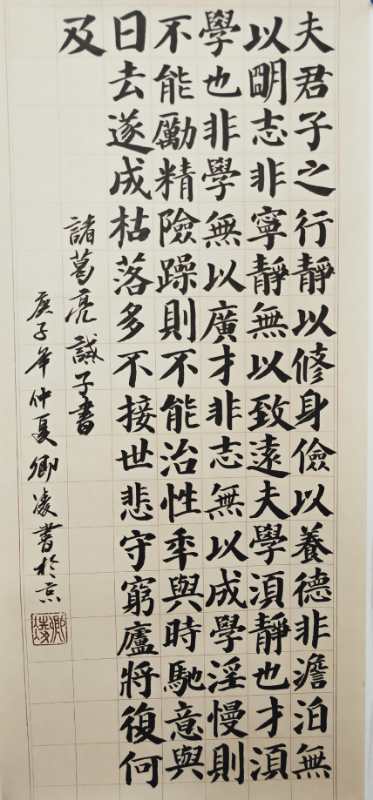 夫君子之行靜以修身儉以養德非澹泊無
以眀志非寧靜無以致遠夫學湏靜也才湏
學也非學無以廣才非志無以成學淫慢則
不能勵精險躁則不能治性年與時馳意與
日去遂成枯落多不接世悲守窮廬將復何
及
諸葛亮誡子書
庚子年仲夏卿凌書於京
卿凌